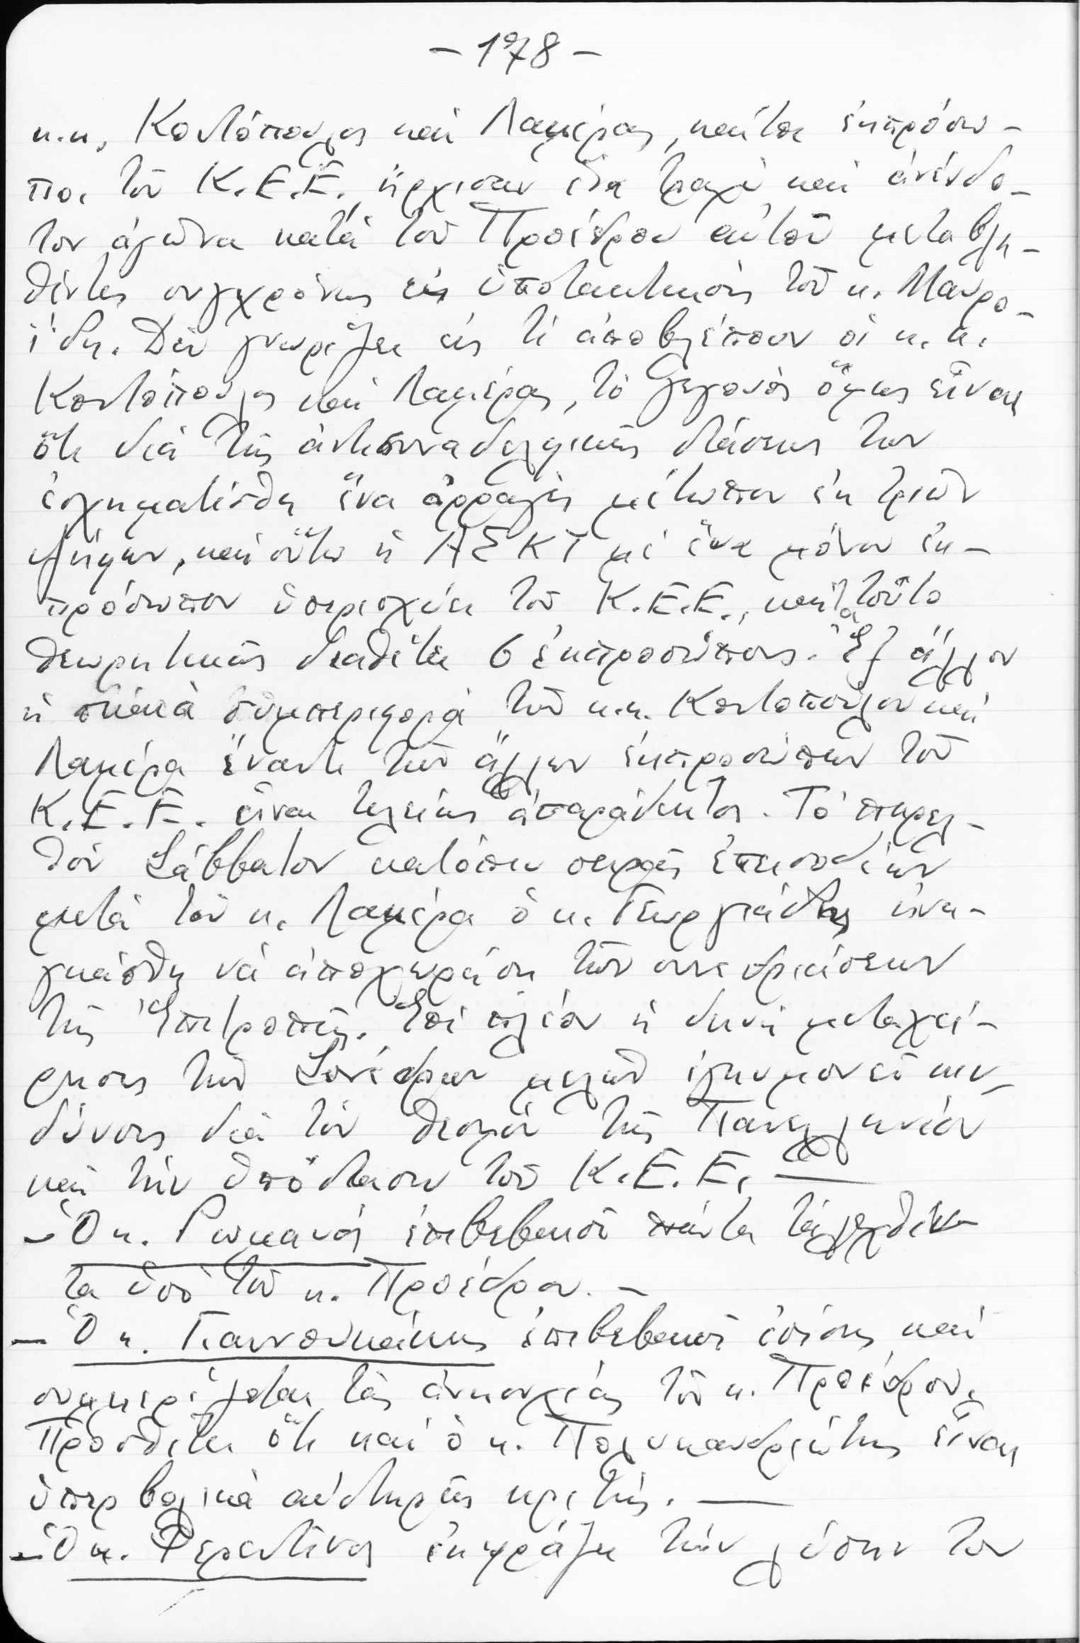 - 178 -
κ.κ. Κοντόπουλος καὶ Λαμέρας, καίτοι ἐκπρόσω-
ποι τοῦ Κ.Ε.Ε. ἤρχισαν ἕνα τραχὺ καὶ ἀνένδο-
τον ἀγῶνα κατὰ τοῦ Προέδρου αὐτοῦ μεταβλη-
θέντες συγχρόνως εἰς ὑποτακτικοὺς τοῦ κ. Μαυρο-
ΐδη. Δὲν γνωρίζει εἰς τὶ ἀποβλέπουν οἱ κ.κ.
Κοντόπουλος καὶ Λαμέρας, τὸ γεγονὸς ὅμως εἶναι
ὅτι διὰ τῆς ἀντισυναδελφικῆς στάσεως των
ἐσχηματίσθη ἕνα ἀρραγὲς μέτωπον ἐκ τριῶν
ψήφων, καὶ οὕτω ἡ ΑΣΚΤ μὲ ἕνα μόνον ἐκ-
πρόσωπον ὑπερισχύει τοῦ Κ.Ε.Ε., καίτοι τοῦτο
θεωρητικῶς διαθέτει 6 ἐκπροσώπους. Ἐξ ἄλλου
ἡ σκαιὰ συμπεριφορὰ τῶν κ.κ. Κοντοπούλου καὶ
Λαμέρα ἔναντι τῶν ἄλλων ἐκπροσώπων τοῦ
Κ.Ε.Ε. εἶναι τελείως ἀπαράδεκτος. Τὸ παρελ-
θὸν Σάββατον κατόπιν σειρᾶς ἐπεισοδίων
μετὰ τοῦ κ. Λαμέρα ὁ κ. Γεωργιάδης ἠνα-
γκάσθη νὰ ἀποχωρήσῃ τῶν συνεδριάσεων
τῆς Ἐπιτροπῆς. Ἐπὶ πλέον ἡ δεινὴ μεταχεί-
ρησις τῶν Συνέδρων μελῶν ἐγκυμονεῖ κιν-
δύνους διὰ τὸν θεσμὸν τῆς Πανελληνίου
καὶ τὴν ὑπόστασιν τοῦ Κ.Ε.Ε. —
- Ὁ κ. Ρωμανὸς ἐπιβεβαιοῖ πάντα τὰ λεχθέν-
τα ὑπὸ τοῦ κ. Προέδρου. -
- Ὁ κ. Γιαννουκάκης ἐπιβεβαιοῖ ἐπίσης καὶ
συμμερίζεται τὰς ἀνησυχίας τοῦ κ. Προέδρου.
Προσθέτει ὅτι καὶ ὁ κ. Πολυκανδριώτης εἶναι
ὑπερβολικὰ αὐστηρὸς κριτής. —
- Ὁ κ. Φερεντῖνος ἐκφράζει τὴν λύπην του